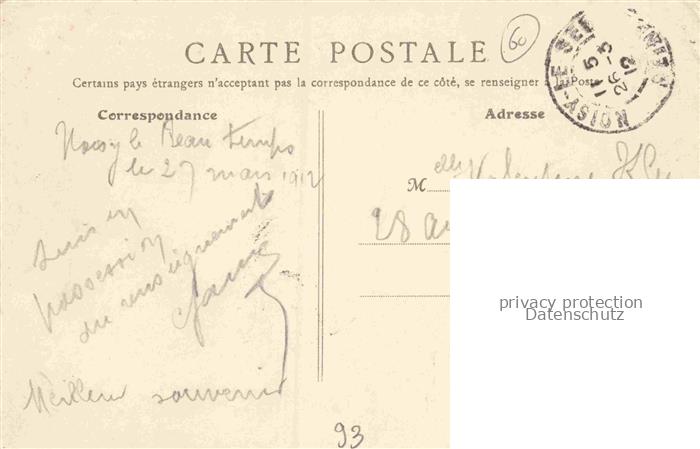 60
CARTE POSTALE
Certains pays étrangers n'acceptant pas la correspondance de ce côté, se renseigner à la Poste
Correspondance
Adresse
NOISY-LE-SEC
11 5
26-3
12
le 27 mars 1912
Suis en
possession
du renseignement
Meilleur souvenir
M elle Valentine
28 av
93
privacy protection
Datenschutz